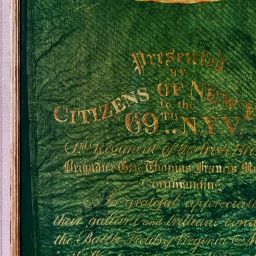 Presented
BY
CITIZENS OF NEW
to the
69TH .. N.Y.V
1st Regiment of the Irish Br
Brigadier Gen. Thomas Francis M
Commanding
In grateful appreciati
their gallant and brilliant condu
the Battle Fields of Virginia M